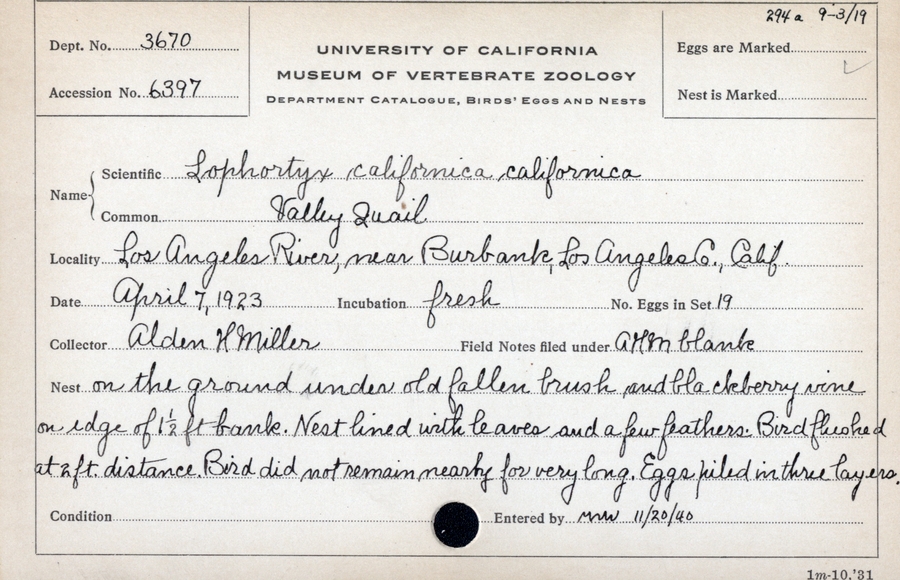 294a 9-3/19
Dept. No. 3670
UNIVERSITY OF CALIFORNIA
Eggs are Marked
MUSEUM OF VERTEBRATE ZOOLOGY
Accession No. 6397
DEPARTMENT CATALOGUE, BIRDS' EGGS AND NESTS
Nest is Marked
Name { Scientific Lophortyx californica californica
Common Valley Quail
Locality Los Angeles River, near Burbank, Los Angeles Co., Calif.
Date April 7, 1923 Incubation fresh No. Eggs in Set 19
Collector Alden H Miller Field Notes filed under AHM blank
Nest on the ground under old fallen brush and blackberry vine
on edge of 1½ ft bank. Nest lined with leaves and a few feathers. Bird flushed
at 2 ft. distance. Bird did not remain nearby for very long. Eggs piled in three layers.
Condition Entered by MW 11/20/40
1m-10,'31